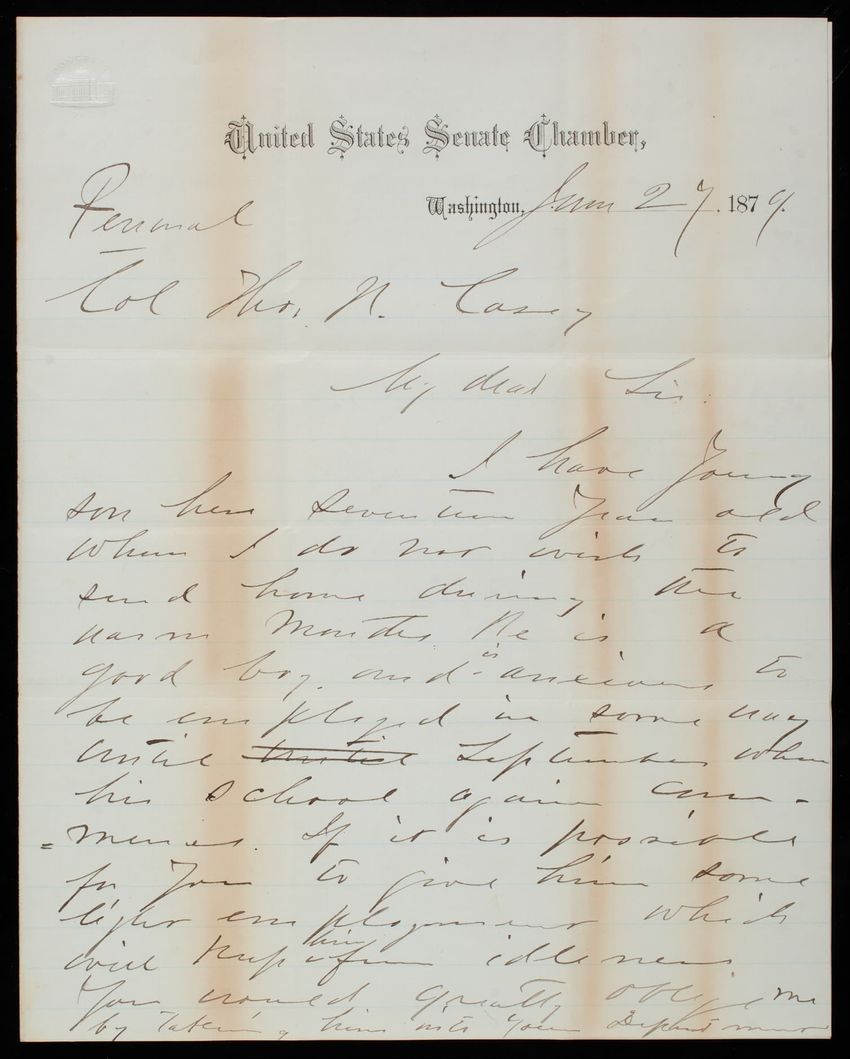 United States Senate Chamber,
Washington, June 27. 1879.
Personal
Col Tho. N. Casey
My dear Sir:
I have Young
son here seventeen Years old
whom I do not wish to
send home during the
warm Months. He is a
good boy and is anxious to
be employed in some way
until until September when
his school again com-
=mences. If it is possible
for You to give him some
light employment which
will keep him from idleness
You would greatly oblige me
by taking him into Your Department